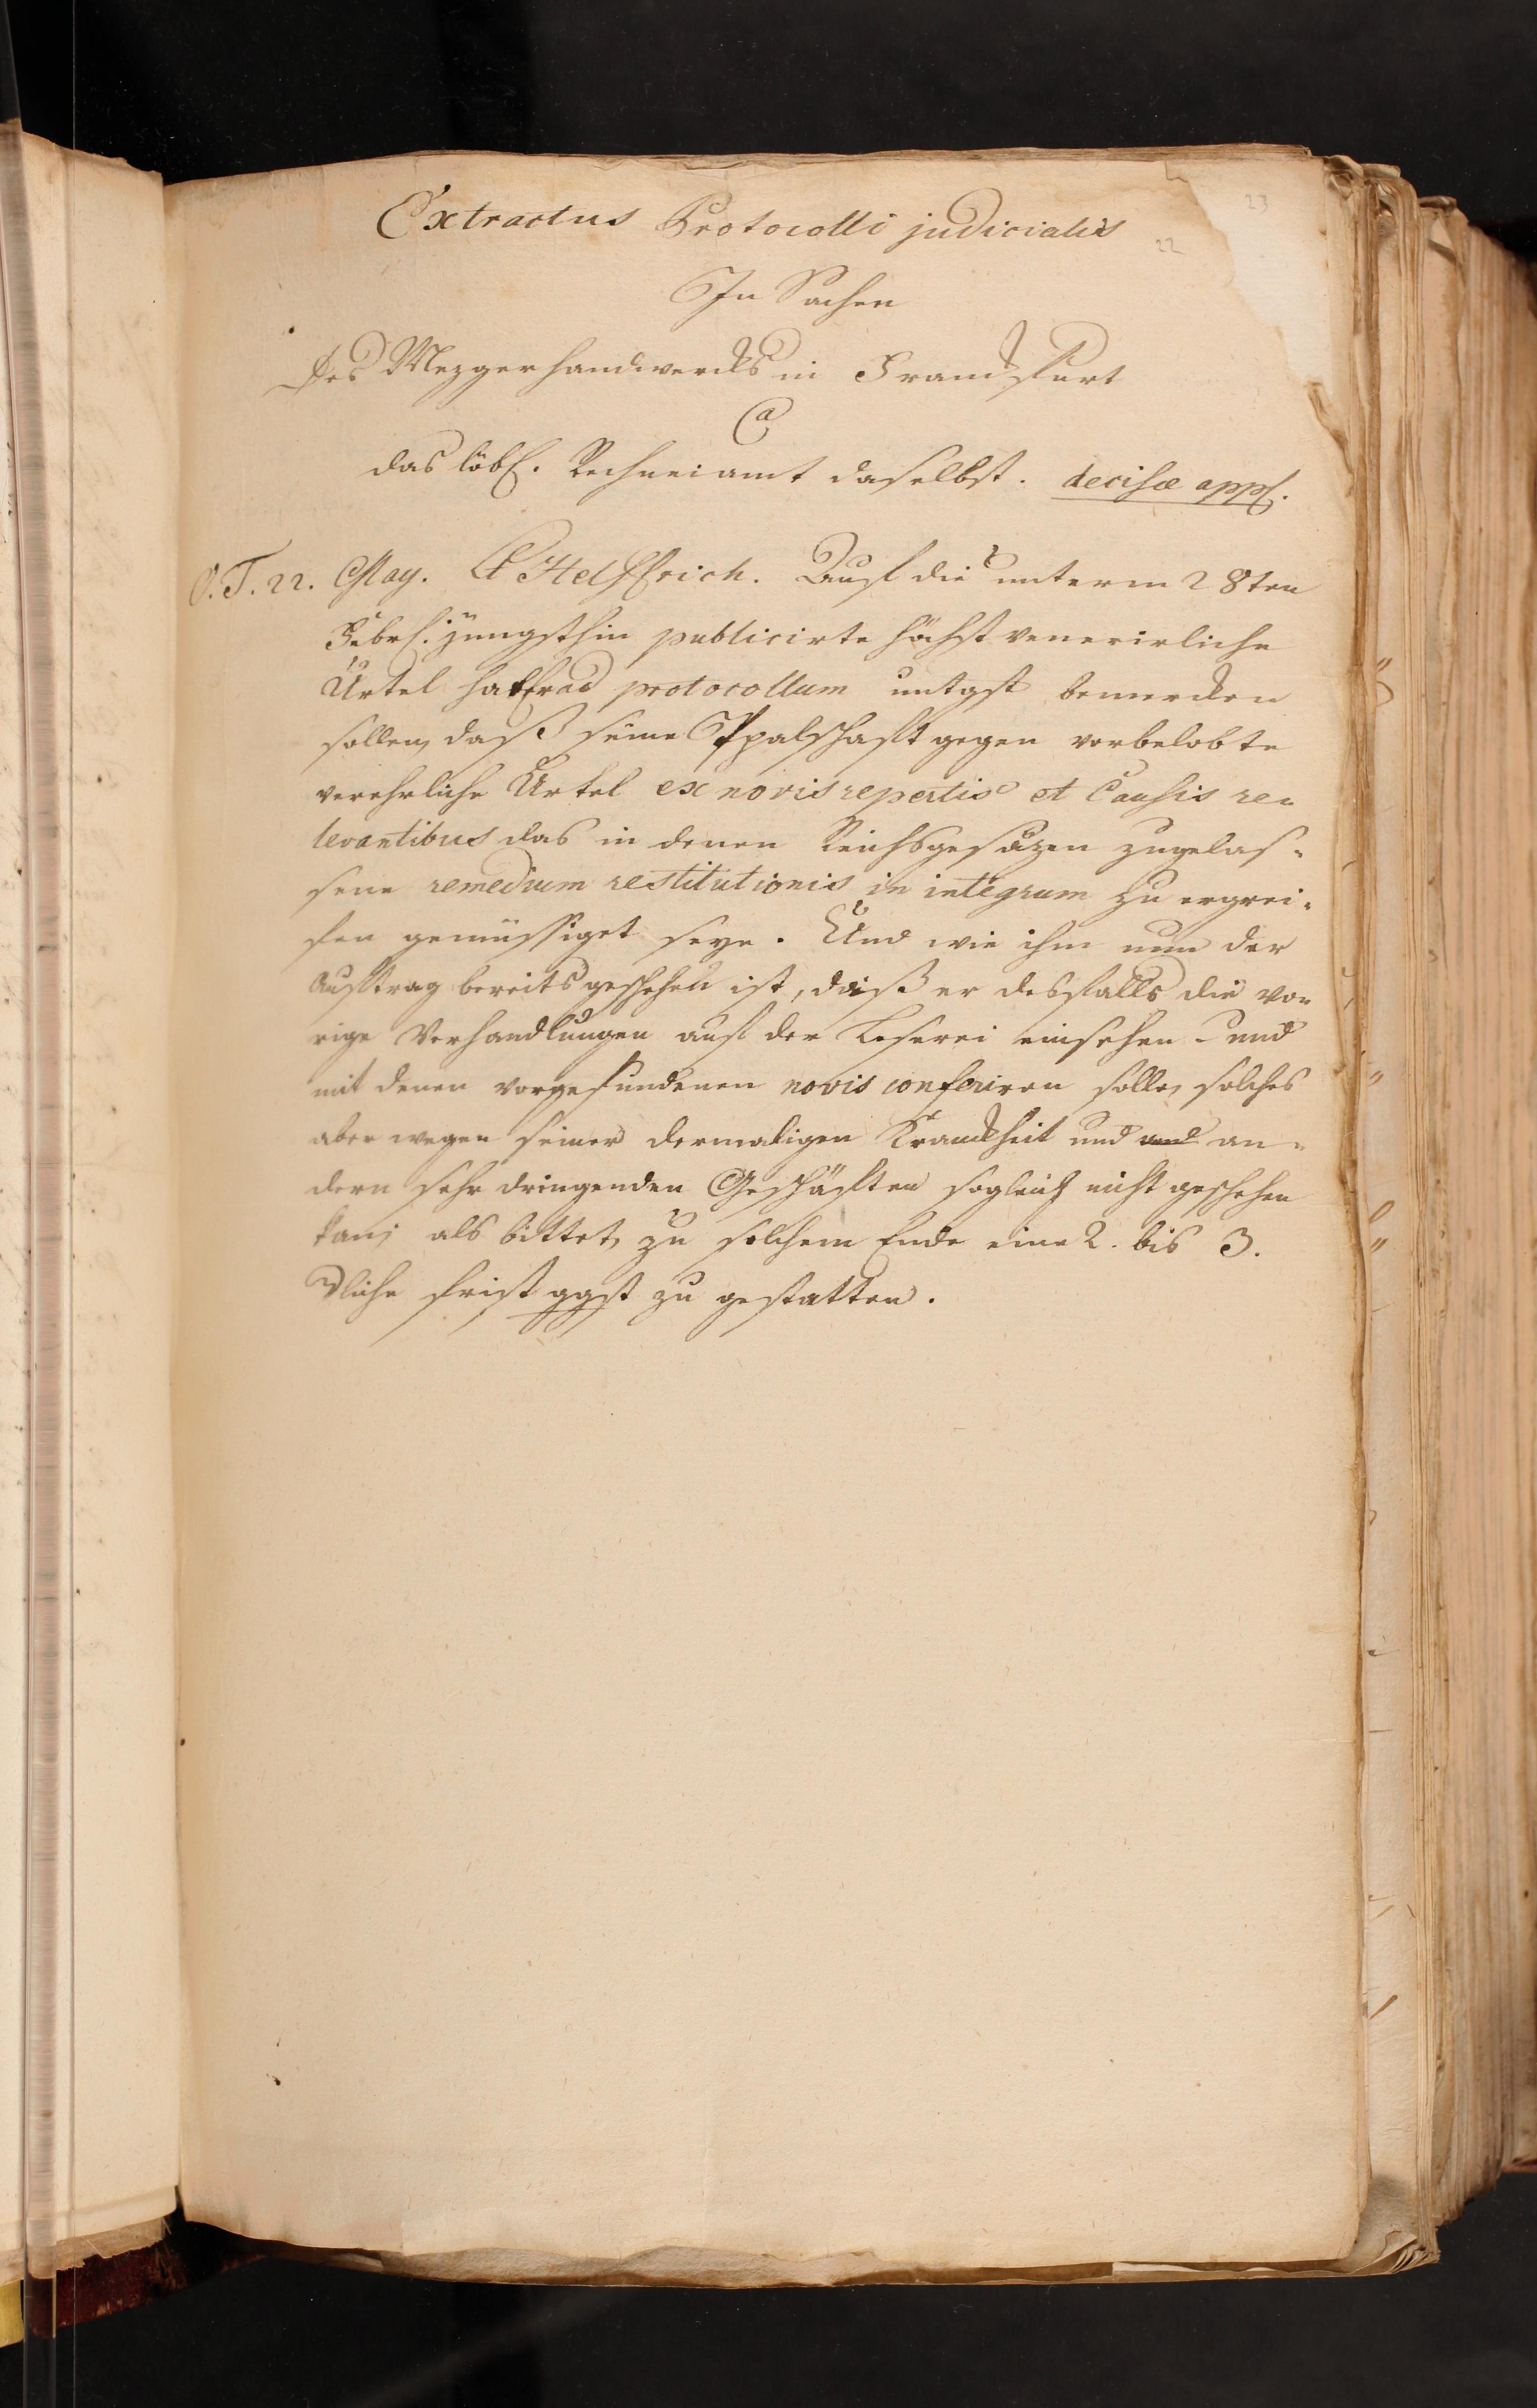 23
Extractus Protocolli judicialis
22
In Sachen
des Mezgerhandwercks in Franckfurt
Ca
das löbl. Rechneiamt daselbst. decisæ appl.
O. T. 22. May. Lt Helffrich. Auf die unterm 28ten
Febr. jüngsthin publicirte höchst venerirliche
Urtel hat er ad protocollum untgst bemercken
sollen, daß seine Ppalschaft gegen vorbelobte
verehrliche Urtel ex novis repertis et Causis re-
levantibus das in denen Reichsgesäzen zugelas-
sene remedium restitutionis in integrum zu ergrei-
fen gemüssiget seye. Und wie ihm nun der
Auftrag bereits geschehen ist, daß er desfalls die vo-
rige Verhandlungen auf der Leserei einsehen und
mit denen vorgefundenen novis conferiren solle, solches
aber wegen seiner dermaligen Kranckheit und und an-
dern sehr dringenden Geschäften sogleich nicht geschehen
kan; als bittet, zu solchem Ende eine 2. bis 3.
liche frist ggst zu gestatten.